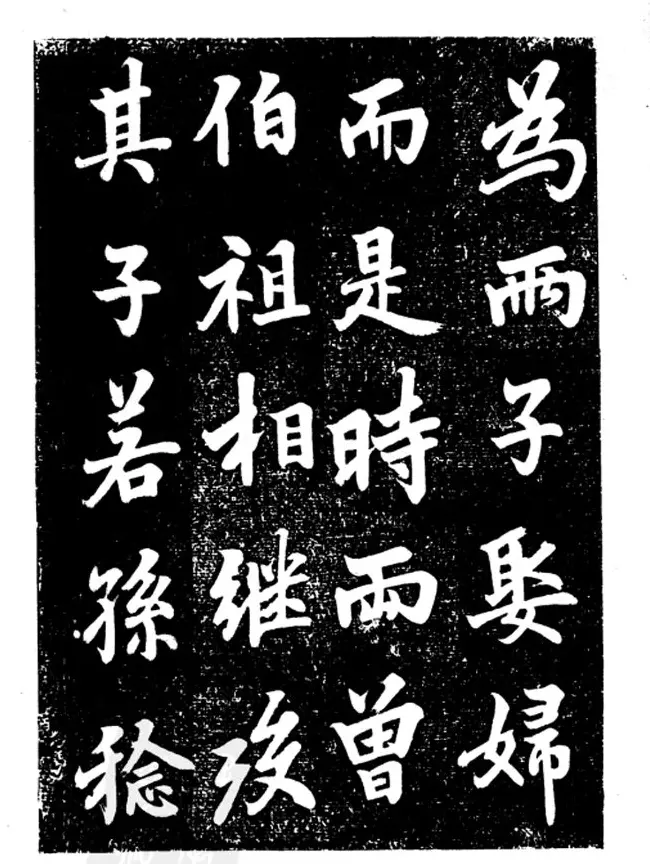 為兩子娶婦
而是時兩曾
伯祖相継歿
其子若孫稔